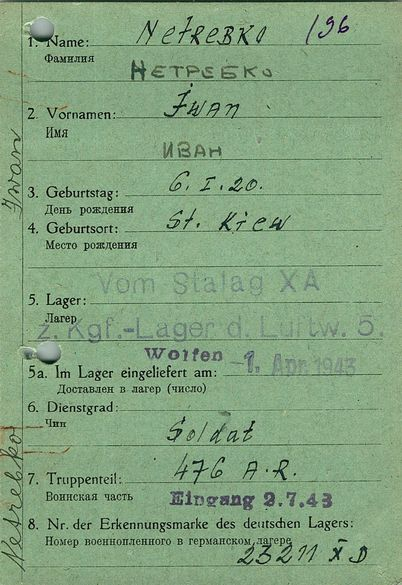 1. Name: Netrebko 196
Фамилия
НЕТРЕБКО
2. Vornamen: Iwan
Имя
ИВАН
3. Geburtstag: 6. I. 20.
День рождения
4. Geburtsort: St. Kiew
Место рождения
Vom Stalag XA
5. Lager:
Лагер
z. Kgf.-Lager d. Luftw. 5.
Wolfen -1. Apr. 1943
5a. Im Lager eingeliefert am:
Доставлен в лагер (число)
6. Dienstgrad:
Чин
Soldat
7. Truppenteil: 476 A.R.
Воинская часть Eingang 2.7.43
8. Nr. der Erkennungsmarke des deutschen Lagers:
Номер военнопленного в германском лагере
23211 X D
Netrebko Iwan